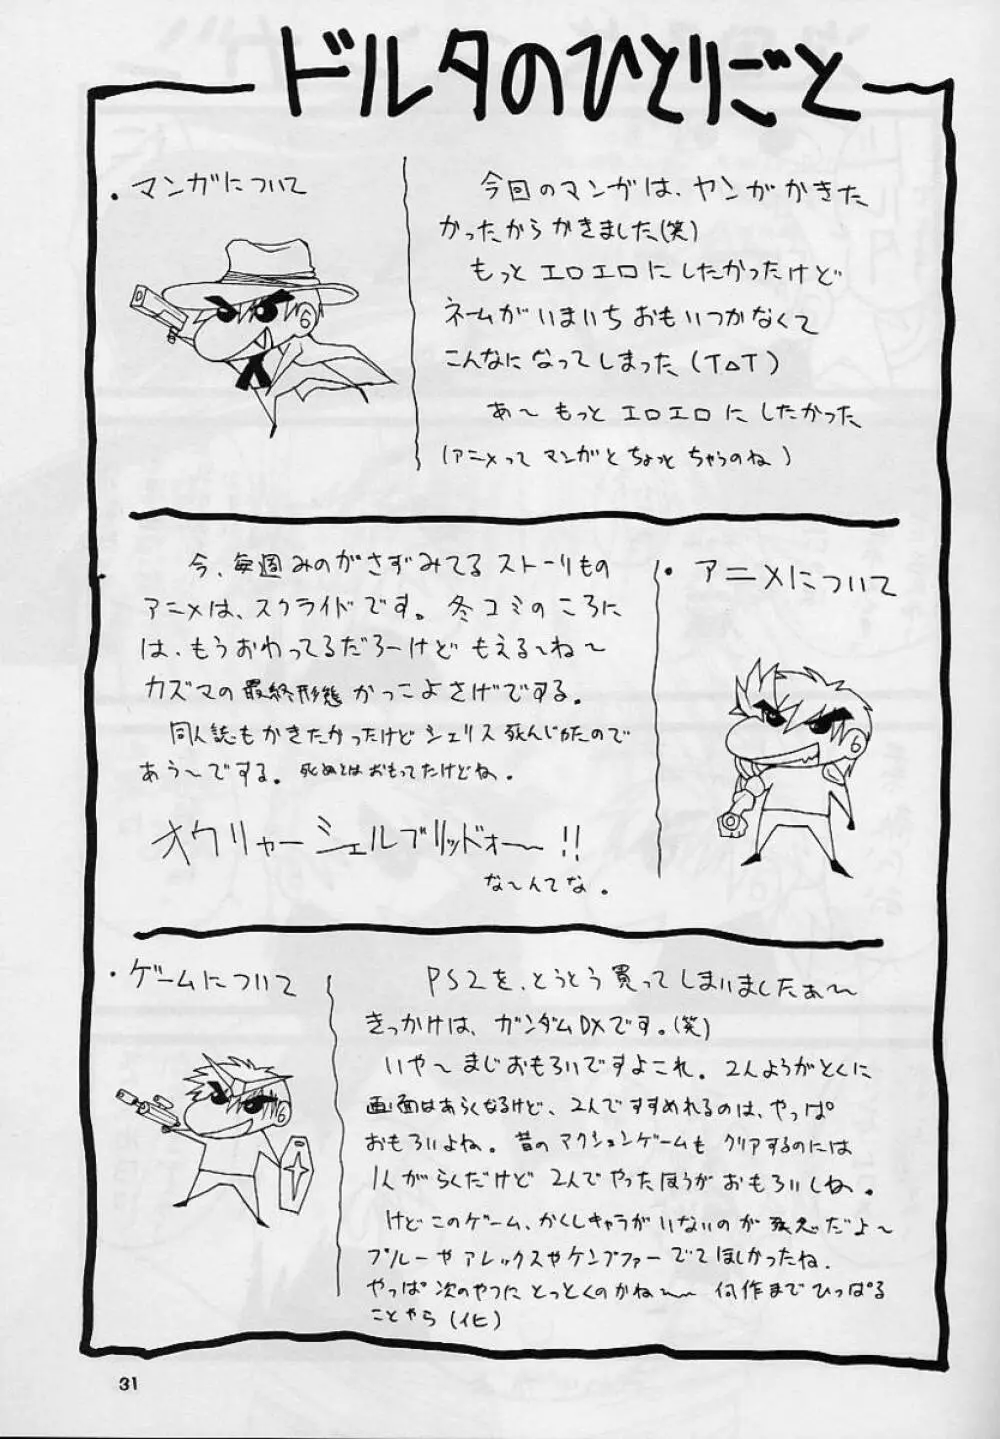 ドルタのひとりごと
・マンガについて
今回のマンガは、ヤンがかきた
かったからかきました(笑)
もっとエロエロにしたかったけど
ネームがいまいちおもいつかなくて
こんなになってしまった(T△T)
あ〜もっとエロエロにしたかった
(アニメってマンガとちょっとちゃうのね)
・アニメについて
今、毎週みのがさずみてるストーリもの
アニメは、スクライドです。冬コミのころに
は、もうおわってるだろーけどもえる〜ね〜
カズマの最終形態かっこよさげでする。
同人誌もかきたかったけどシェリス死んじゃたので
あう〜でする。死ぬとはおもってたけどね。
オウリャーシェルブリッドォー〜!!
な〜んてな。
・ゲームについて
PS2を、とうとう買ってしまいましたぁ〜
きっかけは、ガンダムDXです。(笑)
いや〜まじおもろいですよこれ。2人ようがとくに
画面はあらくなるけど、2人ですすめれるのは、やっぱ
おもろいよね。昔のアクションゲームもクリアするのには
1人がらくだけど2人でやったほうがおもろいしね。
けどこのゲーム、かくしキャラがいないのが残念だよ〜
ブルーやアレックスやケンプファーでてほしかったね.
やっぱ次のやつにとっとくのかね〜何作までひっぱる
ことやら(イヒ)
31